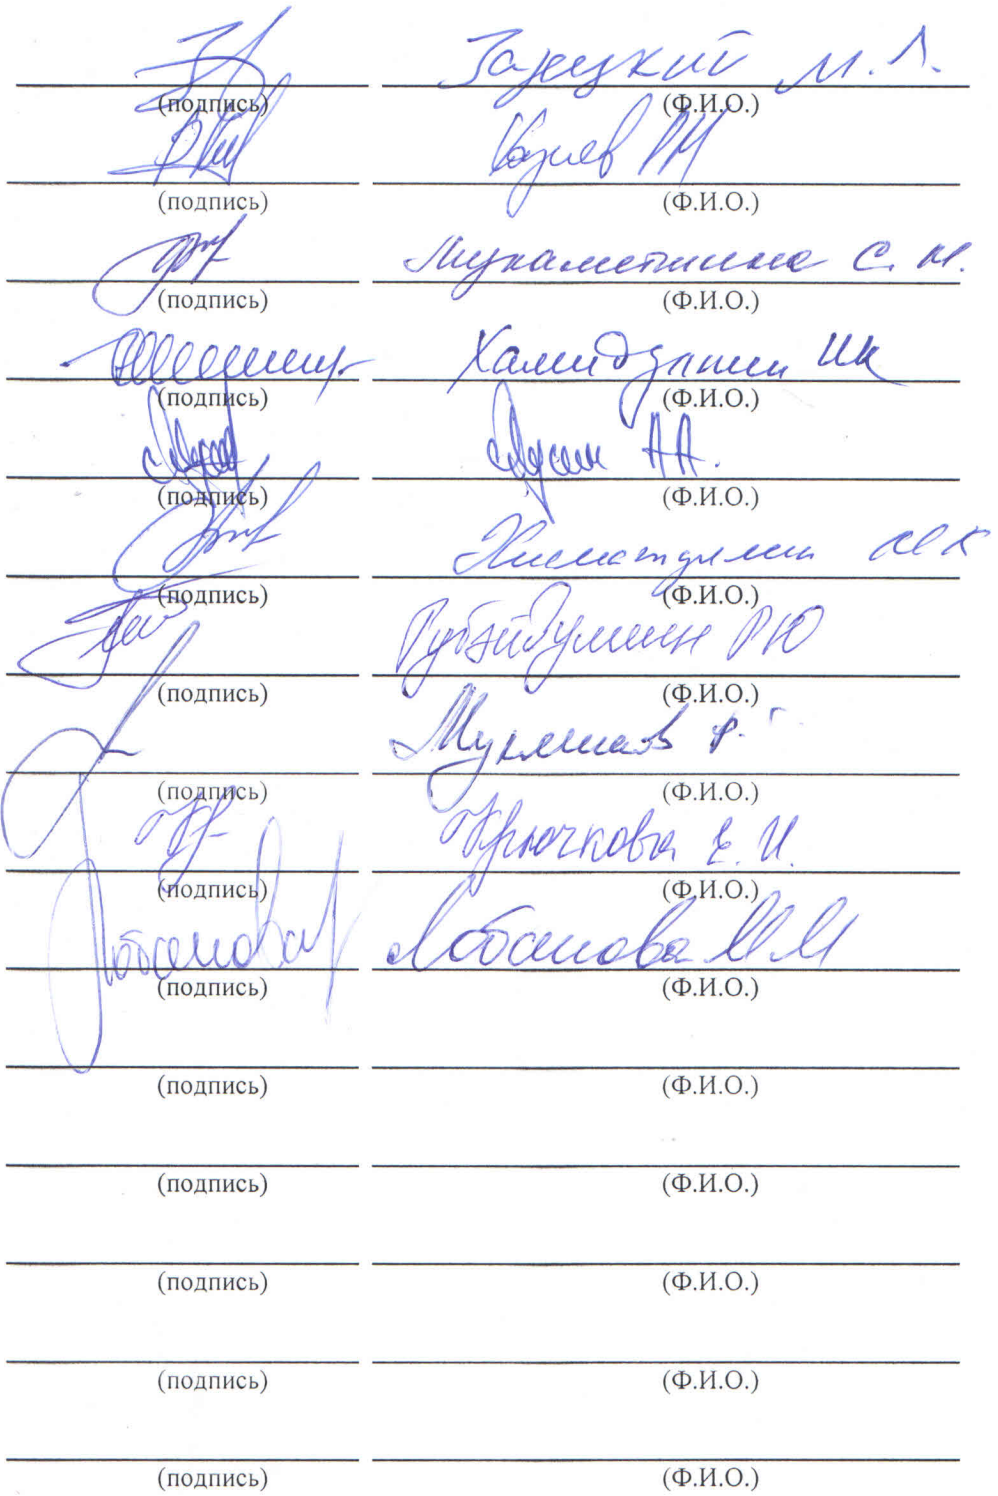 Зарецкий М. Л.
(подпись) (Ф.И.О.)
Казиев РМ
(подпись) (Ф.И.О.)
Мухаметшина С. М.
(подпись) (Ф.И.О.)
Хамидуллин ИК
(подпись) (Ф.И.О.)
АА.
(подпись) (Ф.И.О.)
Хисматуллин
(подпись) (Ф.И.О.)
Губайдуллин РЮ
(подпись) (Ф.И.О.)
(подпись) (Ф.И.О.)
Крючкова Е. И.
(подпись) (Ф.И.О.)
Лобанова Лобанова М М
(подпись) (Ф.И.О.)
(подпись) (Ф.И.О.)
(подпись) (Ф.И.О.)
(подпись) (Ф.И.О.)
(подпись) (Ф.И.О.)
(подпись) (Ф.И.О.)